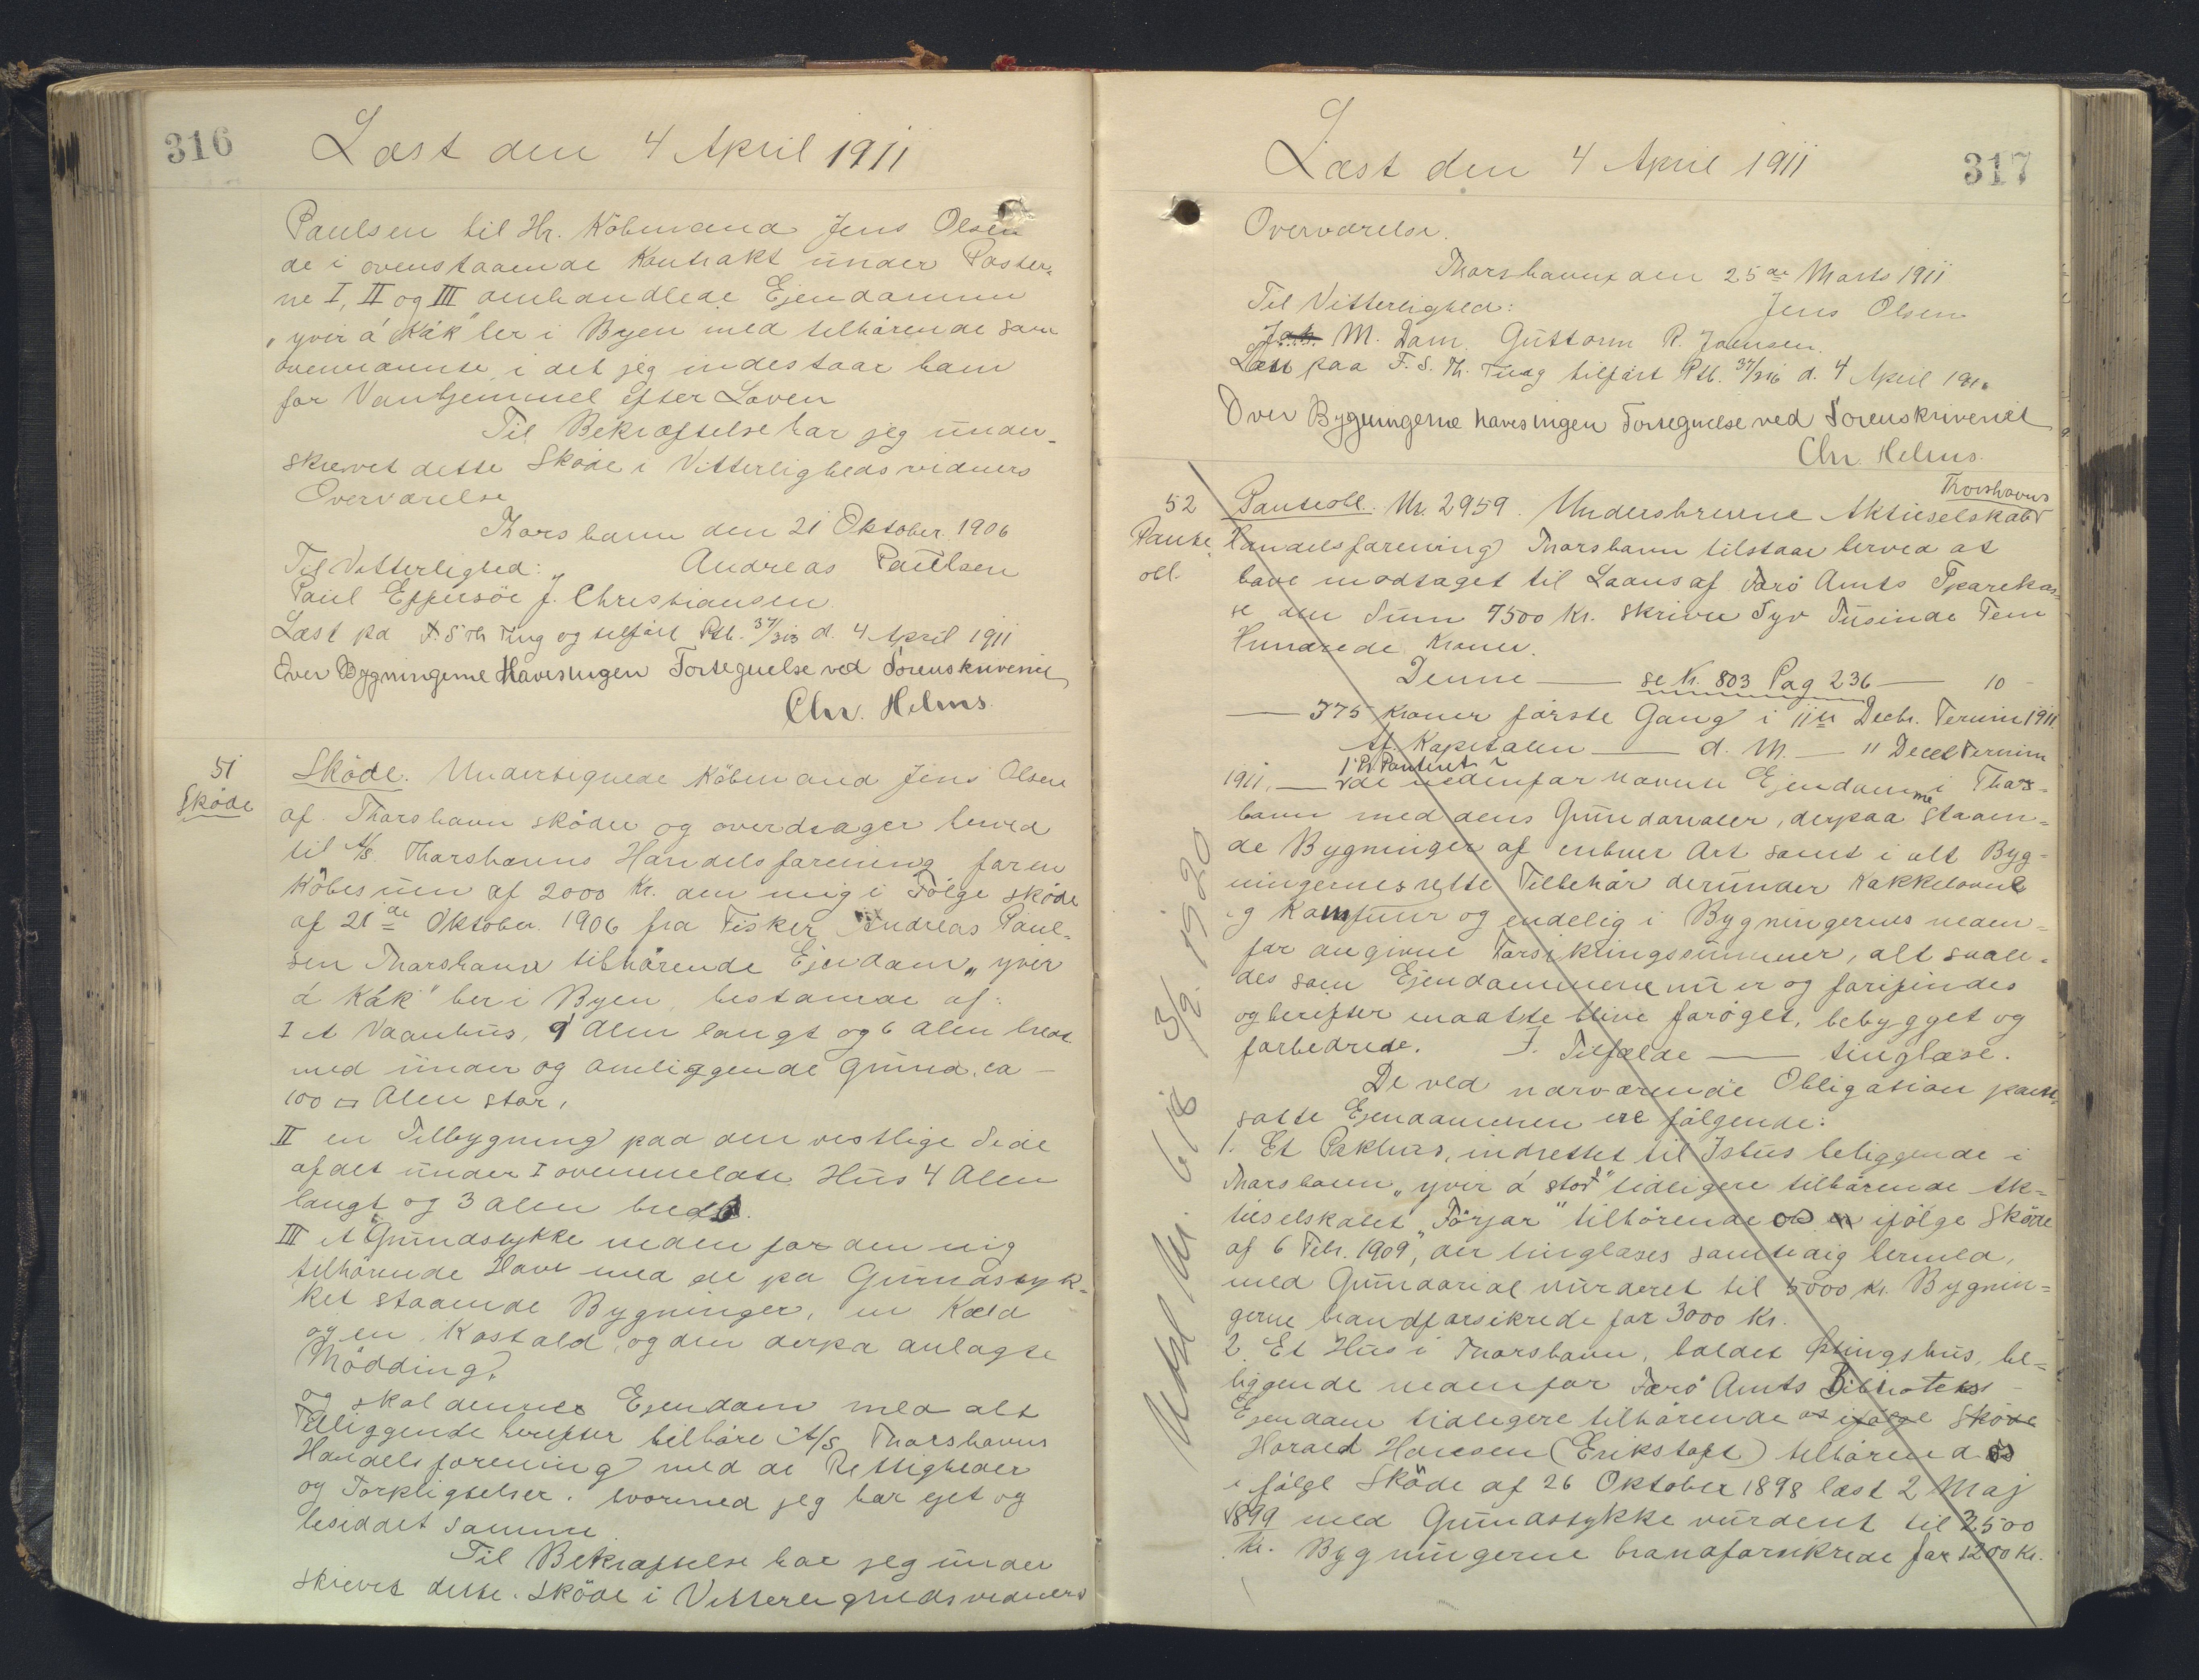 316
Læst den 4 April 1911
Paulsen til Hr. Köbmand Jens Olsen
de i ovenstaaende Kontrakt under Poster-
ne I, II og III omhandlede Ejendomme
"yvir á Kák" her i Byen med tilhörende som
ovennævnte, i det jeg indestaar ham
for Vanhjemmel efter Loven
Til Bekræftelse har jeg under-
skrevet dette Sköde i Vitterligheds vidners
Overværelse
Thorshavn den 21 Oktober 1906
Til Vitterlighed: Andreas Paulsen
Paul Effersöe J. Christiansen
Læst pa F. S Th Ting og tilfört Ptb. 37/313 d. 4 April 1911
Over Bygningerne Haves ingen Fortegnelse ved Sorenskriveriet
Chr. Helms.
51
Sköde
Sköde. Undertegnede Köbmand Jens Olsen
af Thorshavn sköder og overdrager herved
til A/S. Thorshavns Handelsforening for en
Köbesum af 2000 Kr. den mig i Fölge sköde
af 21de Oktober 1906 fra Fisker Andreas Paul-
sen Thorshavn tilhörende Ejendom "yvir
á Kák" her i Byen, bestaaende af:
I et Vaanhus, 9 Alen langt og 6 Alen bredt
med under og omliggende Grund, ca
100 □ Alen stor,
II en Tilbygning paa den vestlige Side
af det under I ovenmeldte Hus 4 Alen
langt og 3 Alen bredt.
III et Grundstykke neden for den mig
tilhörende Have med de pa Grundstyk-
ket staaende Bygninger, en Kæld
og en Kostald, og den derpa anlagte
Mödding,
og skal denne Ejendom med alt
Tilliggende herefter tilhöre A/S Thorshavns
Handelsforening med de Rettigheder
og Forpligtelser, hvormed jeg har ejet og
besiddet samme
Til Bekræftelse har jeg under
skrevet dette Sköde i Vitterlighedsvidners
317
Læst den 4 April 1911
Overværelse.
Thorshavn den 25de Marts 1911
Til Vitterlighed: Jens Olsen
Joh. M. Dam. Guttorm R. Joensen.
Læst paa F. S. Th. Ting tilfört Ptb. 37/316 d. 4 April 1911
Over Bygningerne haves ingen Fortegnelse ved Sorenskriveriet
Chr. Helms.
52
Pante
obl.
Thorshavns
Panteobl. Nr. 2959. Underskrevne Aktieselskabet
Handelsforening Thorshavn tilstaar herved at
have modtaget til Laans af Færö Amts Sparekas-
se den Sum 7500 Kr. skriver Syv Tusinde Fem
Hundrede Kroner.
Denne — se Nr. 803 Pag 236 — 10 -
— 375 Kroner förste Gang i 11te Decbr. Termin 1911
Af Kapitalen — d. M. — 11 Decbr Termin
1' Pr. Panteret i
1911. — de nedenfor navnte Ejendomme i Thors-
havn med dens Grundarealer, derpaa staaen-
de Bygninger af enhver Art samt i alt Byg-
ningernes rette Tilbehör derunder Kakkelovne
og Komfurer og endelig i Bygningernes neden-
for angivne Forsikringssummer, alt saale-
des som Ejendommene nu er og forefindes
og herefter maatte blive foröget, bebygget og
forbedrede. I Tilfælde — tinglæse.
De ved nærværende Obligation pant-
satte Ejendommen ere fölgende:
1. Et Pakhus, indrettet til Ishus beliggende i
Thorshavn "yvir á stod" tidligere tilhörende Ak-
tieselskabet "Förjar" tilhörende os ifölge Sköde
af 6 Febr. 1909, der tinglæses samtidig hermed,
med Grundareal vurderet til 5000 Kr. Bygnin-
gerne brandforsikrede for 3000 Kr.
2. Et Hus i Thorshavn, kaldet Ptingshus, be-
liggende nedenfor Færö Amts Biblioteks
Ejendom tidligere tilhörende os ifölge Sköde
Harald Hansen (Erikstoft) tilhörende os
i fölge Sköde af 26 Oktober 1898 læst 2 Maj
1899 med Grundstykke vurderet til 2500
Kr. Bygningerne brandforsikrede for 1200 Kr.